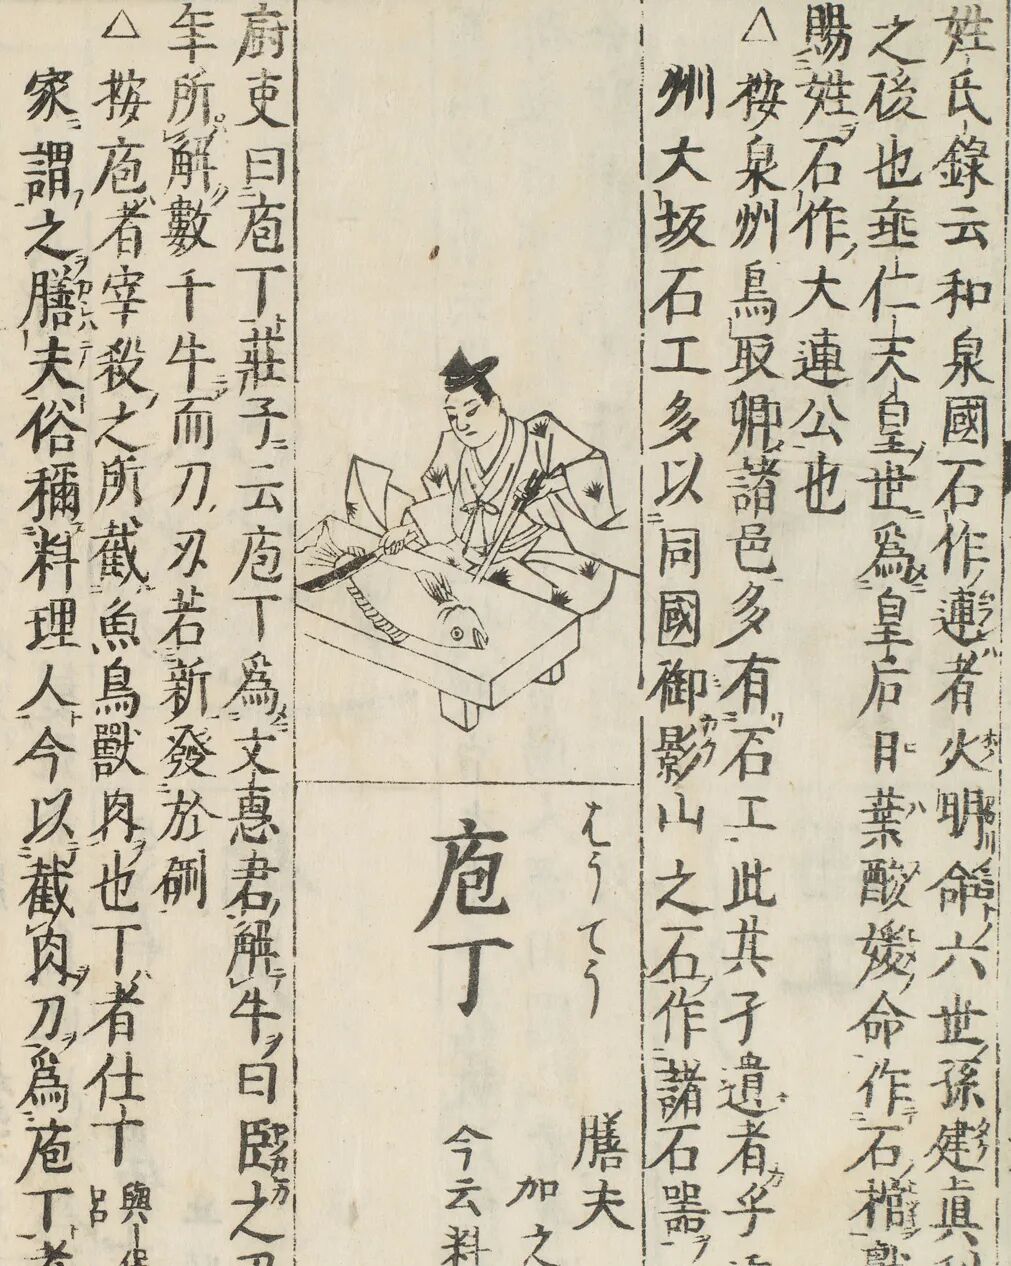 姓氏錄云和泉國石作連者火明命六世孫建眞利
之後也垂仁天皇世爲皇后日葉酸媛命作石棺獻
賜姓石作大連公也
△按泉州鳥取卿諸邑多有石工此其孑遺者乎
州大坂石工多以同國御影山之石作諸石噐
はうてう
庖丁
膳夫
加之
今云料
廚吏曰庖丁莊子云庖丁爲文惠君解牛曰臣之刀
年所解數千牛而刀刃若新發於硎
△按庖者宰殺之所截魚鳥獸肉也丁者仕丁
家謂之膳夫俗稱料理人今以截肉刀爲庖丁者